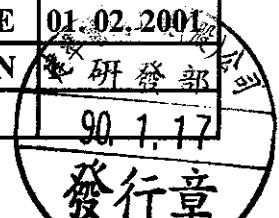 E 01.02.2001
N 研發部
公司
90.1.17
發行章